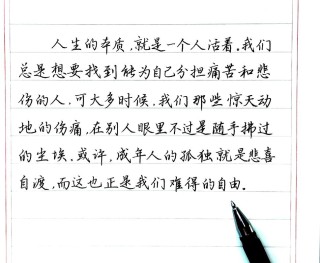 人生的本质，就是一个人活着。我们
总是想要找到能为自己分担痛苦和悲
伤的人，可大多时候，我们那些惊天动
地的伤痛，在别人眼里不过是随手拂过
的尘埃。或许，成年人的孤独就是悲喜
自渡，而这也正是我们难得的自由。